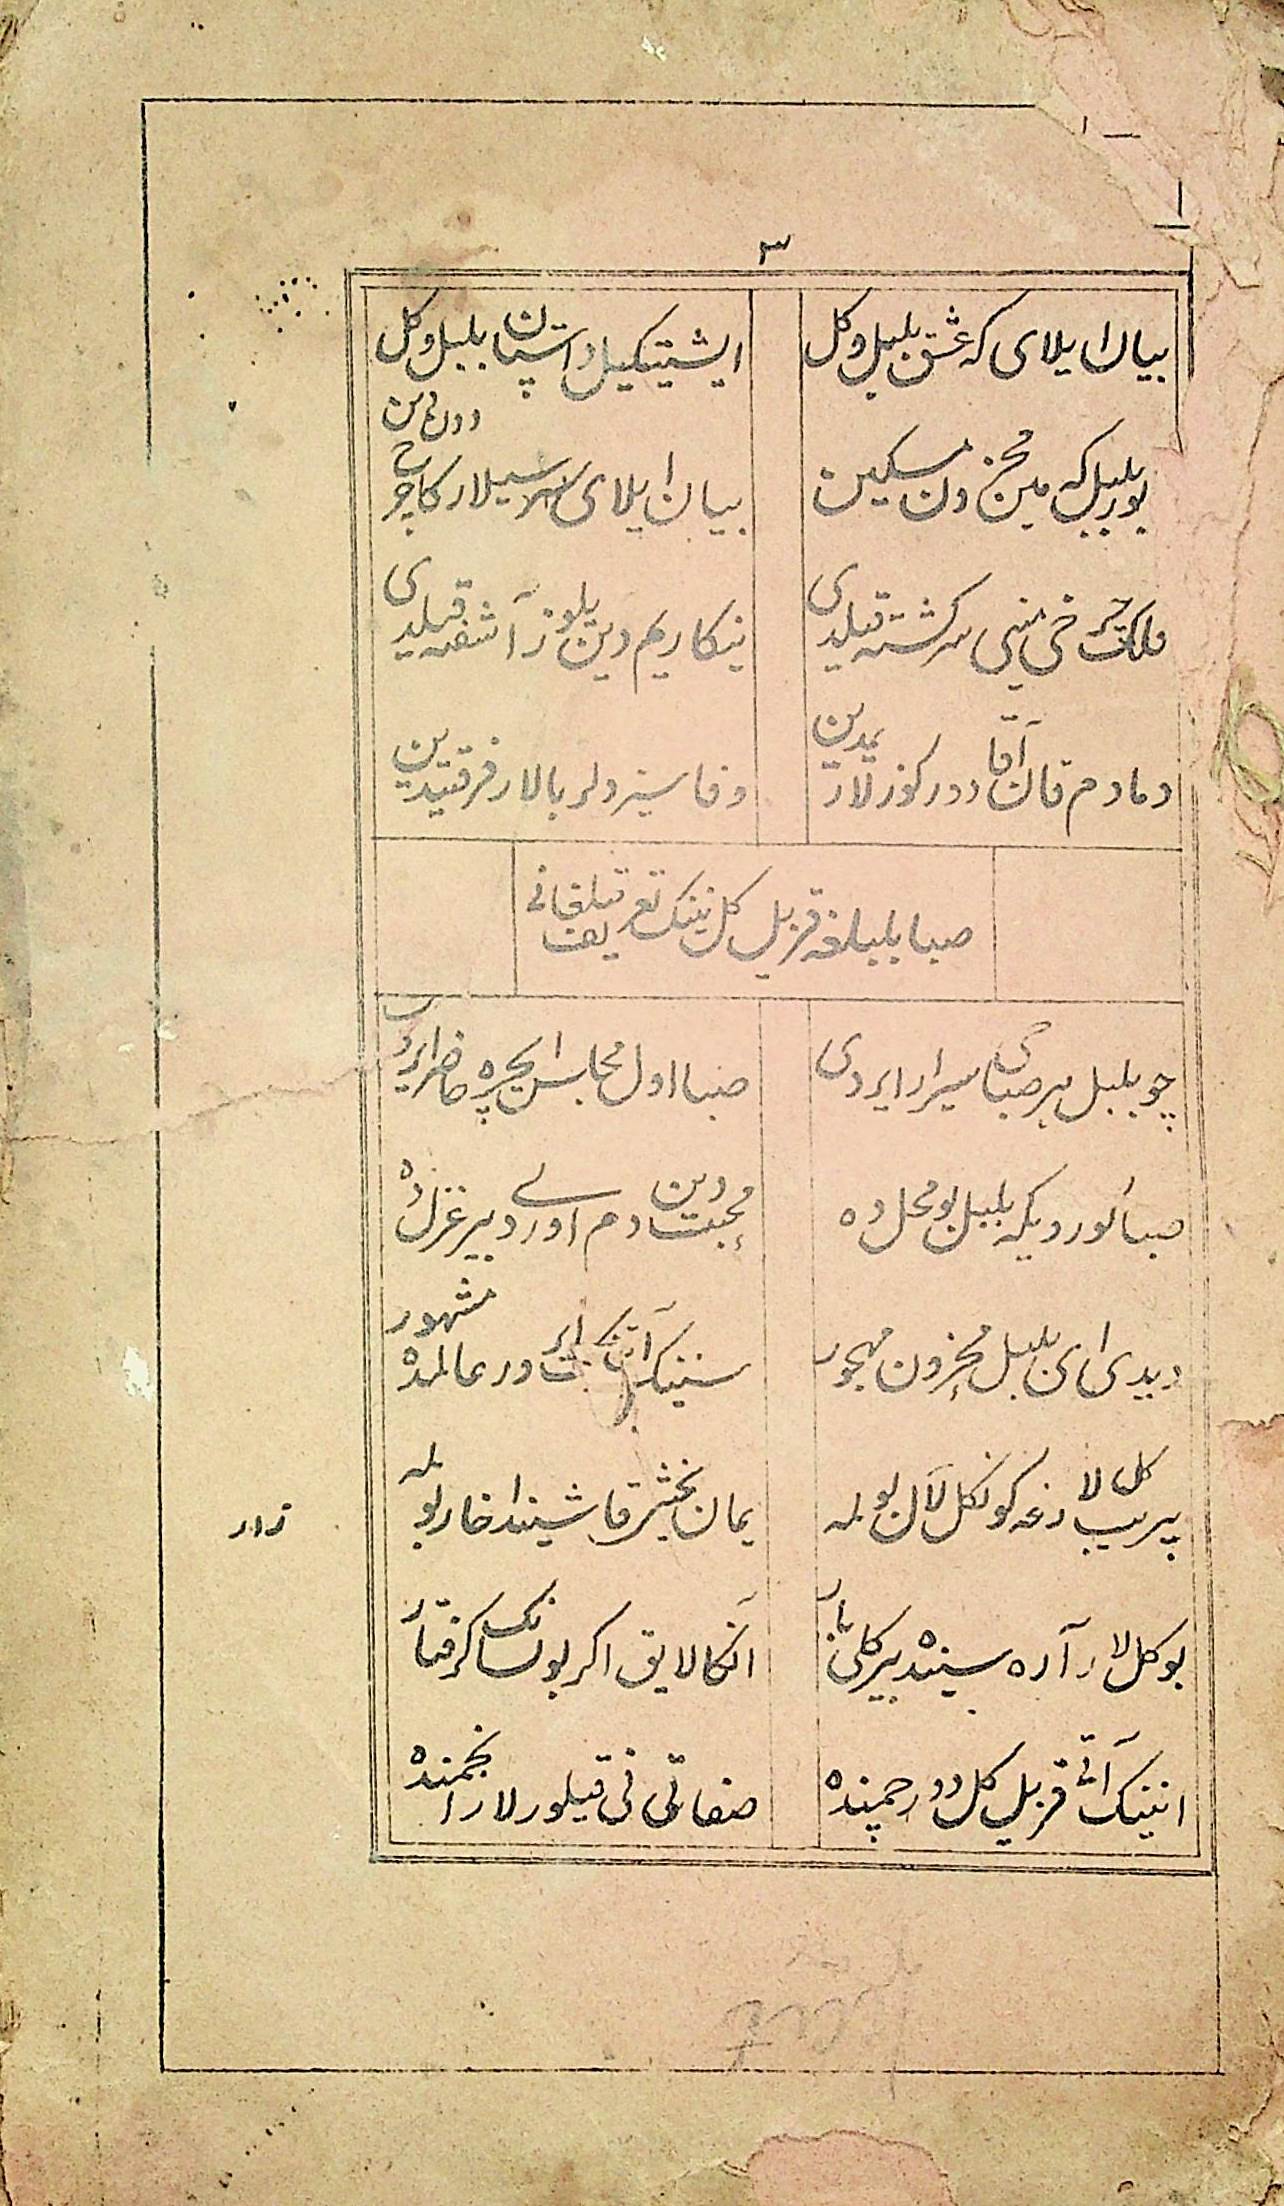 ٣
بیان ایلای که عشق بلبل و کل ایشیتکیل داستان بلبل و کل
بو بلبل که مین محزون مسکین بیان ایلای سیلارکا چرخ دون دین
فلک چرخی منی سرکشته قیلدی نیکاریم دین یلغوز آشفته قیلدی
دمادم قان آقا دور کوزلاریمدین وفاسیز دلربالار فرقتیدین
صبا بلبلغه قزیل کل نینک تعریف قیلغانی
چو بلبل هر صباحی سیرار ایردی صبا اول مجلس ایچره حاضر ایردی
صبا کوردیکه بلبل بو محل ده محبت دین دم اورسه دی بیر غزل ده
دیدی ای بلبل محزون مهجور سنینک آتینک ایرور عالمده مشهور
بیریب کل لارغه کونکل لال بولمه یمان یخشی قاشیندا خار بولمه
زار
بو کل لار آره سینده بیر کلی بار انکا لایق اکر بولسانک کرفتار
انینک آتی قزیل کل دور چمنده صفاتی نی قیلورلار انجمنده